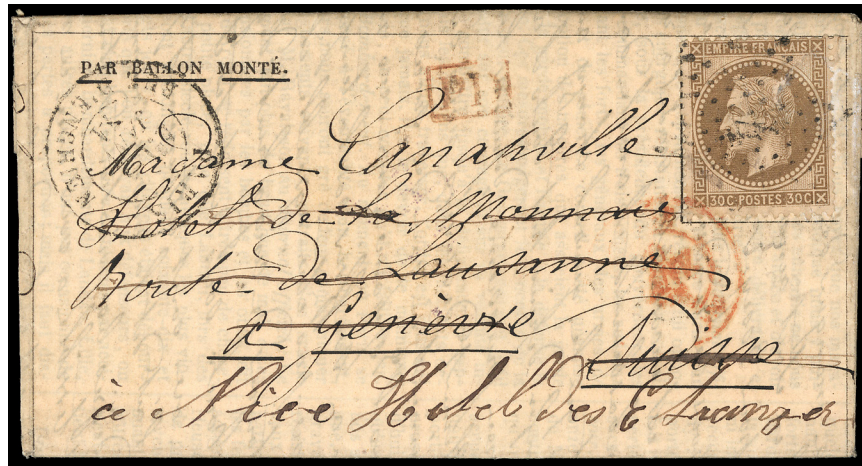 PAR BALLON MONTÉ.
EMPIRE FRANÇAIS
30C·POSTES 30C
PD
PARIS
R. D'ENGHIEN
Madame Canapville
Hotel de la Monnaie
Route de Lausanne
a Genève
Suisse
à Nice Hotel des Etranger